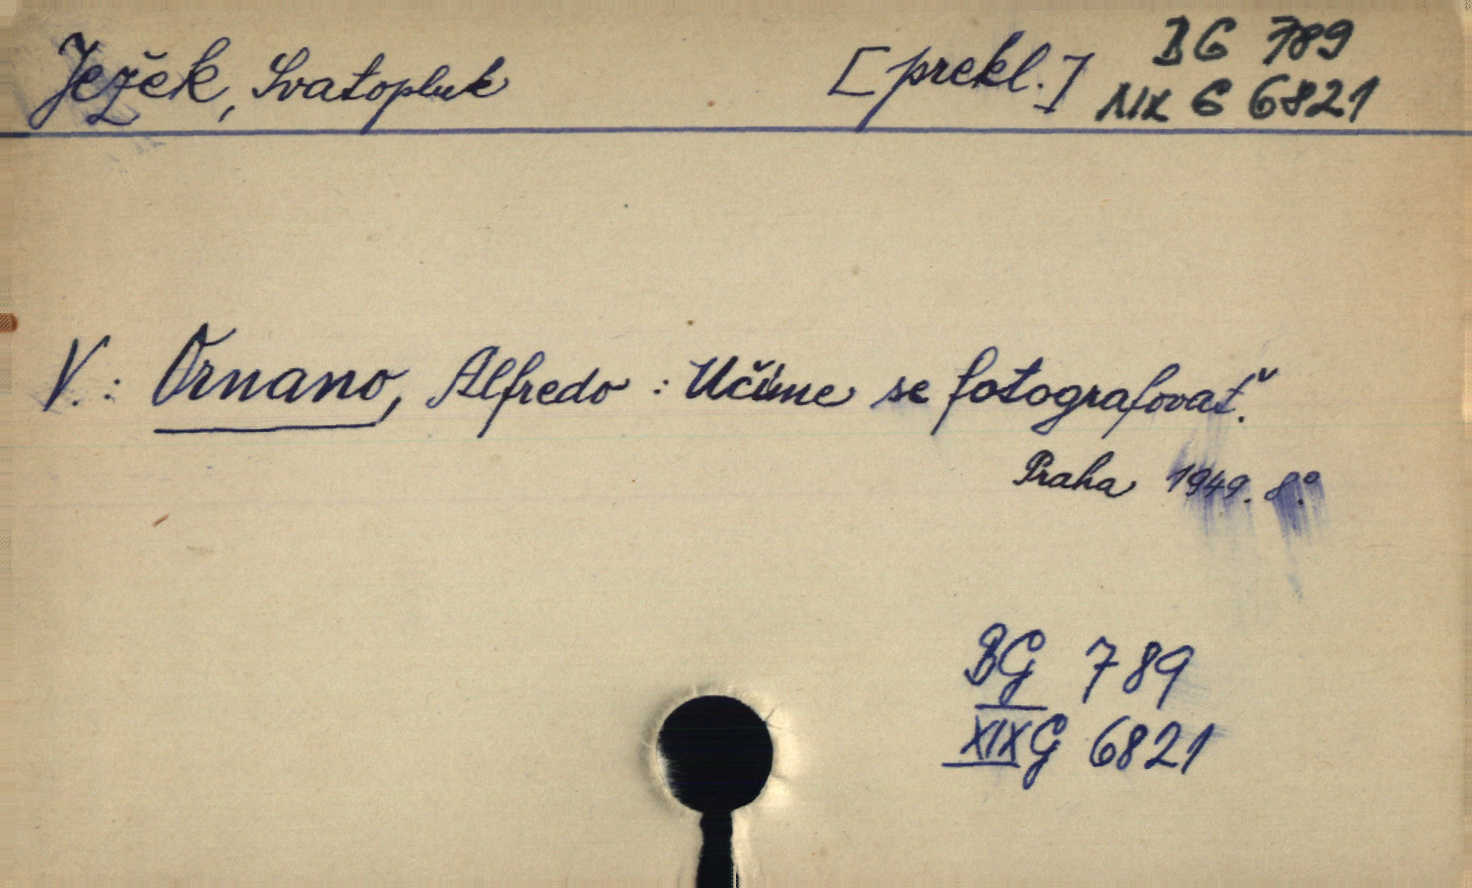 Ježek, Svatopluk [prekl.] BG 789
XIX G 6821
V.: Ornano, Alfredo: Učíme se fotografovať.
Praha 1949. 8°.
BG 789
XIX G 6821